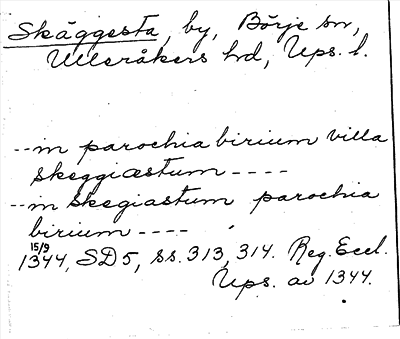 Skäggesta, by, Börje sn,
Ulleråkers hd, Ups. l.
--in parochia birium villa
skeggiæstum ----
--in skegiastum parochia
birium ----
15/9
1344, SD 5, ss. 313, 314. Reg. Eccl.
Ups. av 1344.